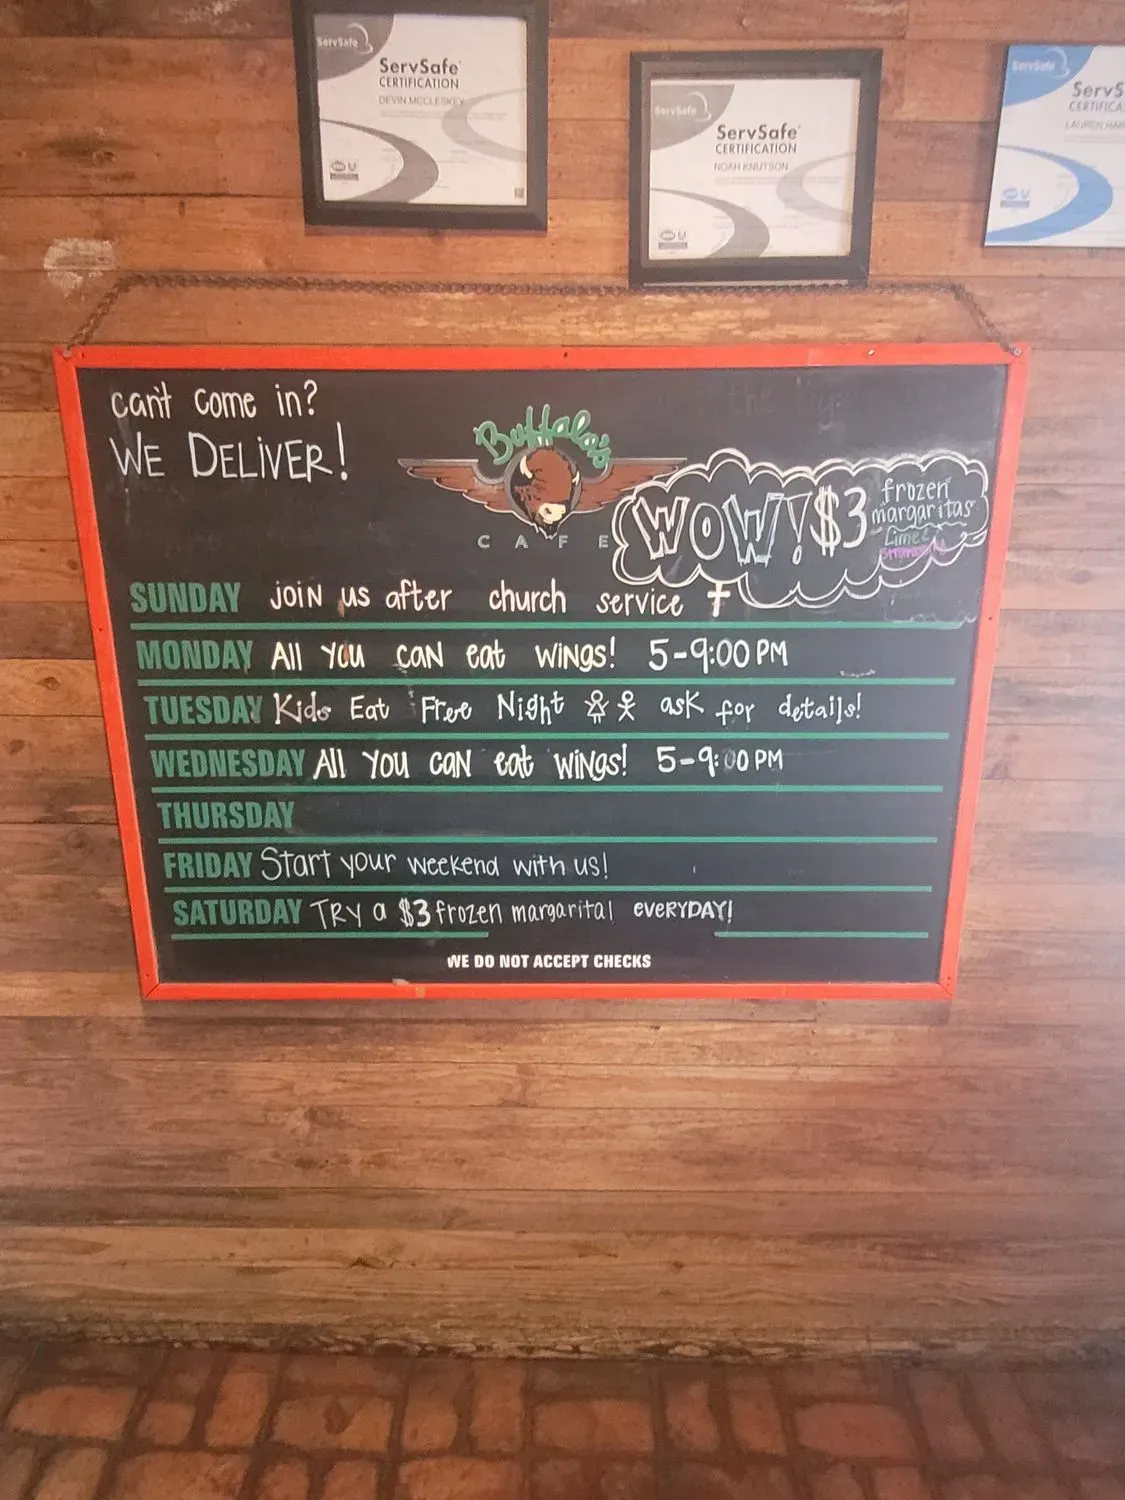 ServSafe
ServSafe®
CERTIFICATION
DEVIN MCCLESKEY
ServSafe
ServSafe®
CERTIFICATION
NOAH KNUTSON
ServSafe
ServS
CERTIFICA
LAUREN HAR
can't come in?
WE DELIVER!
Buffalo's
CAFE
WOW! $3 frozen
margaritas
Lime &
SUNDAY JOIN us after church service
MONDAY All YOU CAN eat WINGS! 5-9:00 PM
TUESDAY Kids Eat Free Night ask for details!
WEDNESDAY All YOU CAN eat WINGS! 5-9:00 PM
THURSDAY
FRIDAY Start your weekend with us!
SATURDAY TRY a $3 frozen margarita! EVERYDAY!
WE DO NOT ACCEPT CHECKS